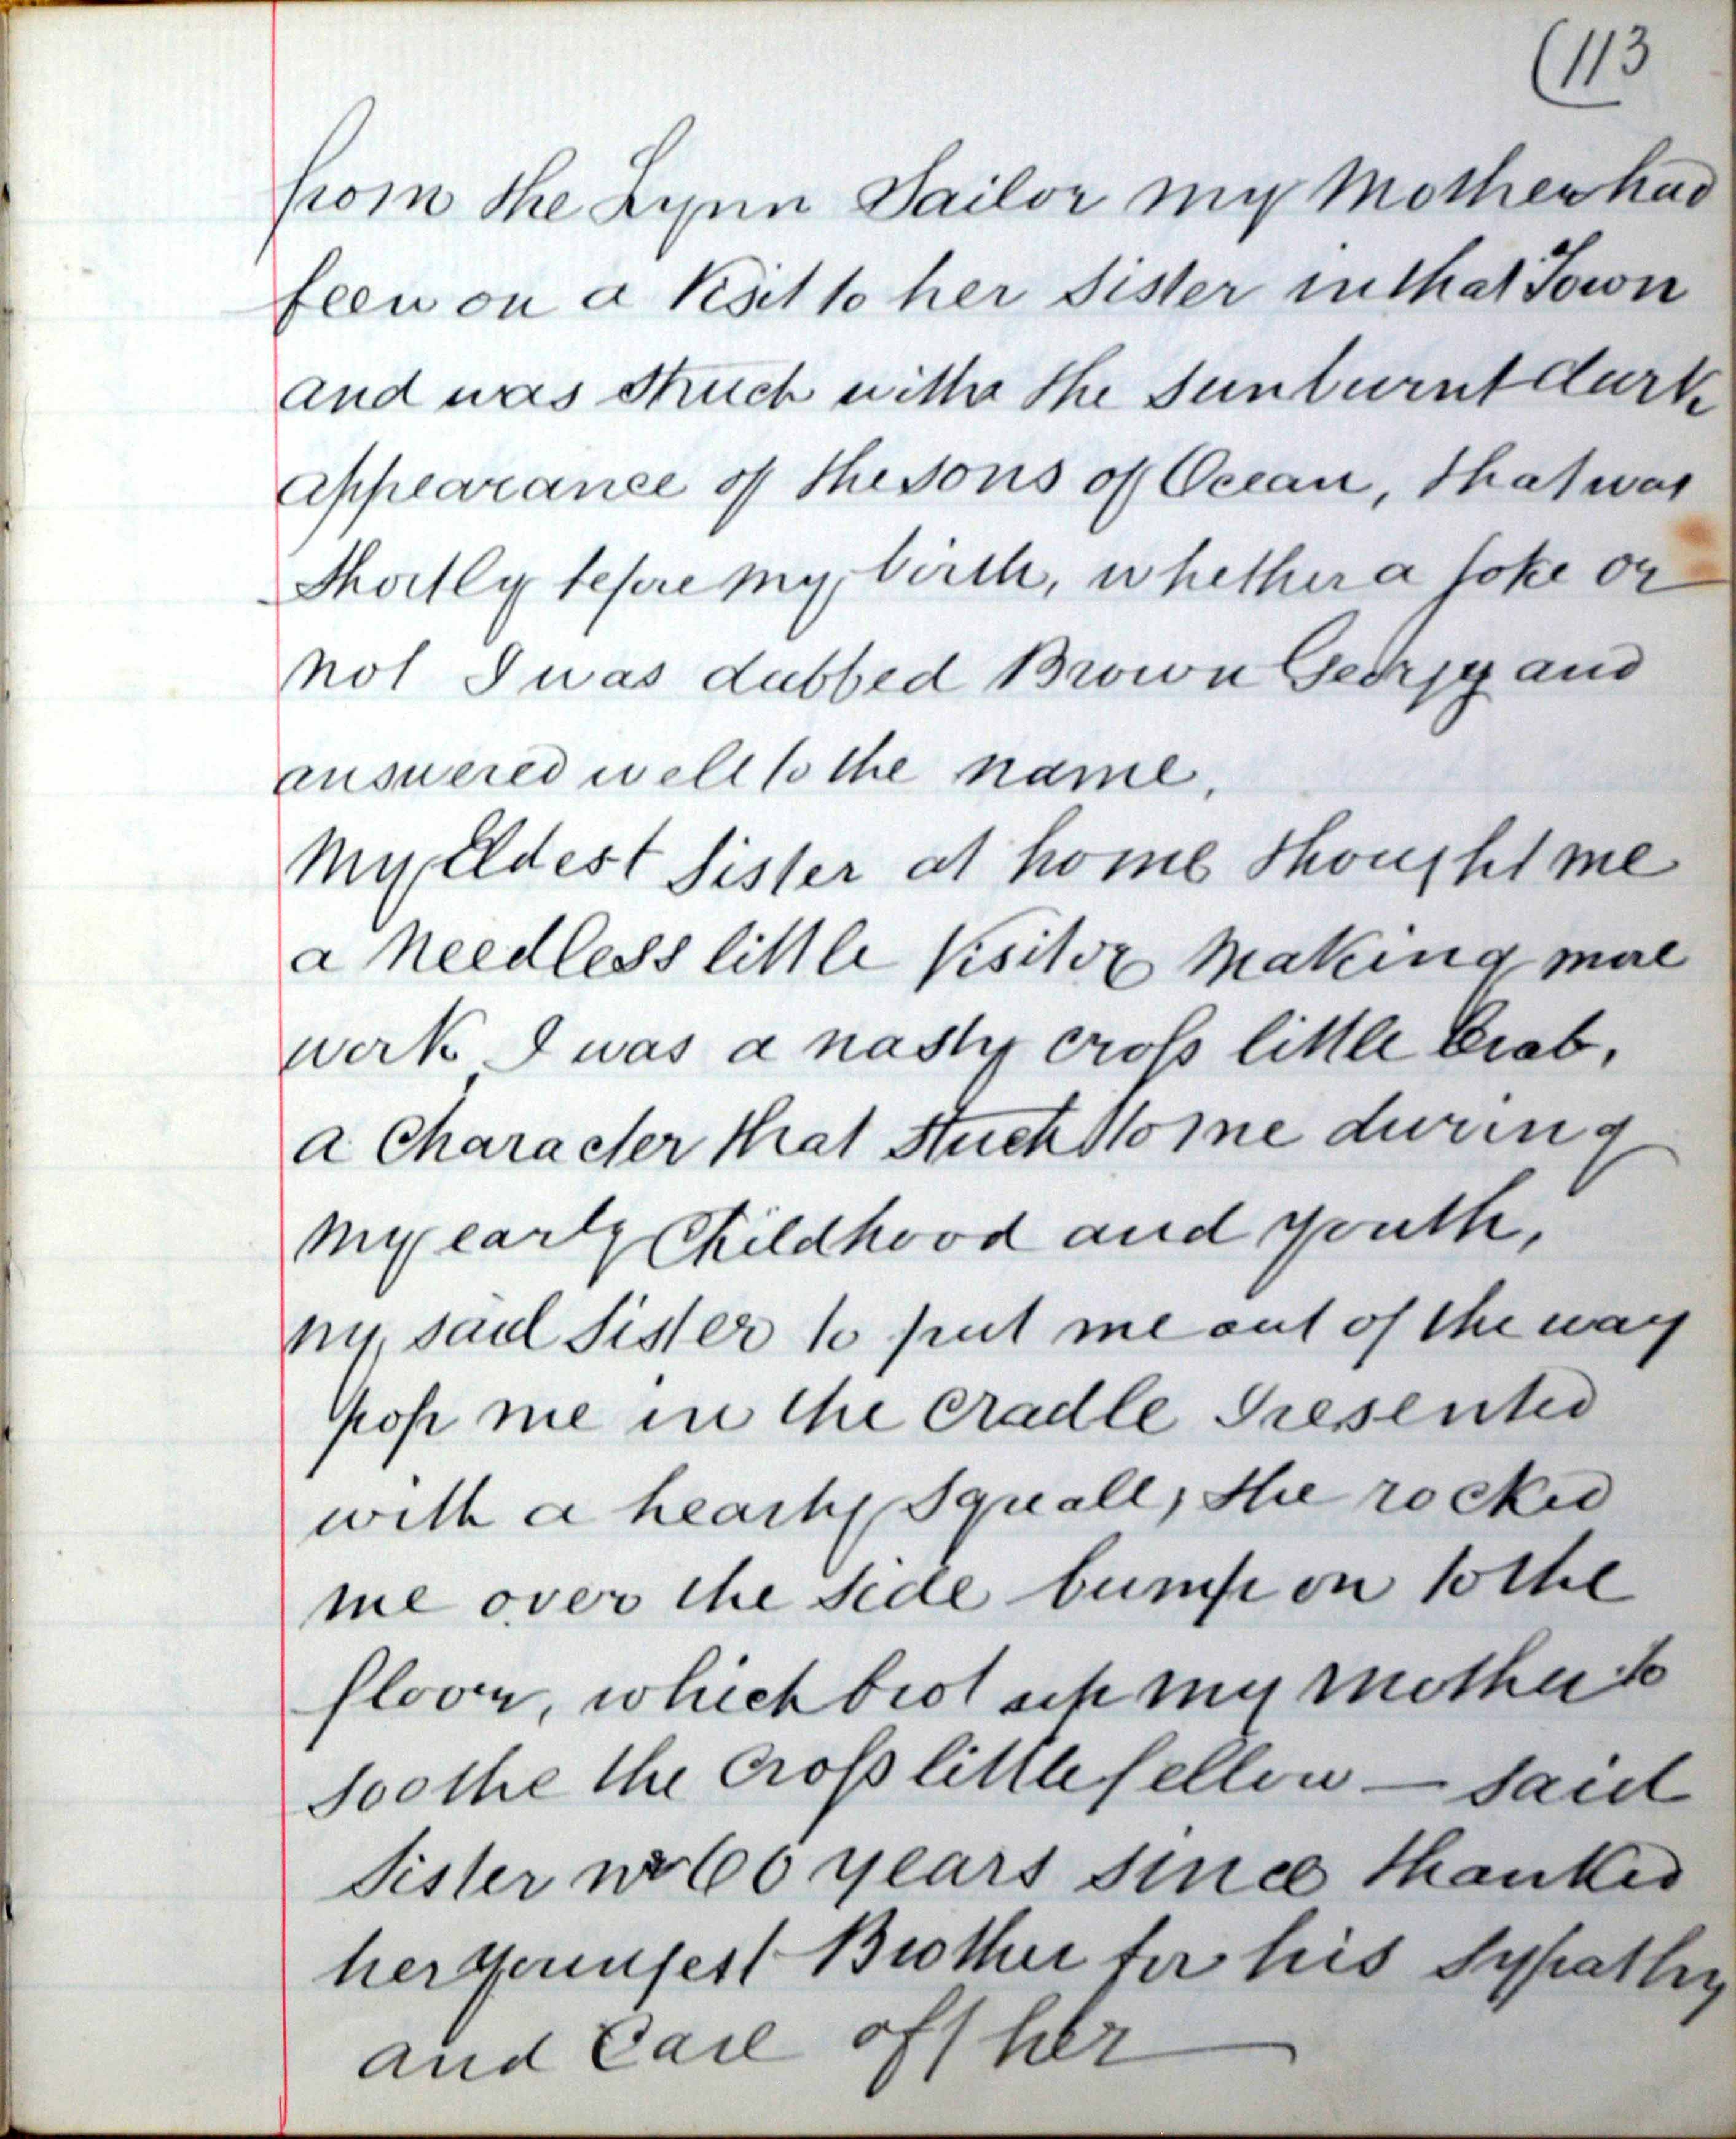 (113
from the Lynn Sailor my Mother had
been on a Visit to her Sister in that Town
and was Struck with the Sunburnt dark
appearance of the sons of Ocean, that was
Shortly before my birth, whether a joke or
not I was dubbed Brown Georgy and
answered well to the name,
My Eldest Sister at home thought me
a Needless little Visitor Making more
work I was a nasty cross little Crab,
a Character that Stuck to me during
my early Childhood and youth,
my said Sister to put me out of the way
pop me in the cradle I resented
with a hearty Squall, she rocked
me over the side bump on to the
floor, which brot up my mother to
soothe the Cross little fellow — said
Sister 60 years since thanked
her youngest Brother for his Sypathy
and Care of her —